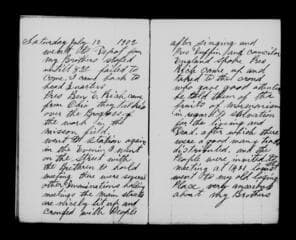 Saturday July 12 1902
went to Depot for
my Brothers stayed
until 9:20 failed to
come, & came back to
head Quarters
Pres Ben E. Rich came
from Ohio they tel
over the Progress of
the work in the
mission field.
went to station again
in the Evening & went
on the Street with
the Brethren to hold
meeting there were several
other denominations holding
meetings the main streets
are nicely lit up and
crowded with People
after singing and
Pres Griffin and
England Spoke Pres
Rich came up and
talked to the crowd
who gave good attention
& told them of the
fruits of Mormonism
in regard to Salvation
of the living and
Dead, after which there
were a good many tracts
Distributed, and the
People were invited to
meeting at
went to my old lodging
Place very anxious
about my Brothers